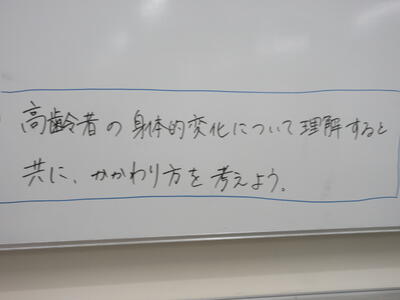 高齢者の身体的変化について理解すると
共に、かかわり方を考えよう。